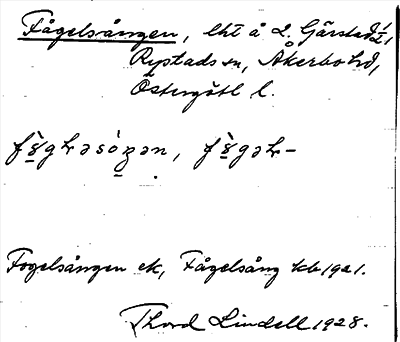 Fågelsången, lht å L. Gärstad 1/2,
Rystads sn, Åkerbo hd,
Östergötl l.
Fogelsången ek, Fågelsång kb 1921.
Thord Lindell 1928.